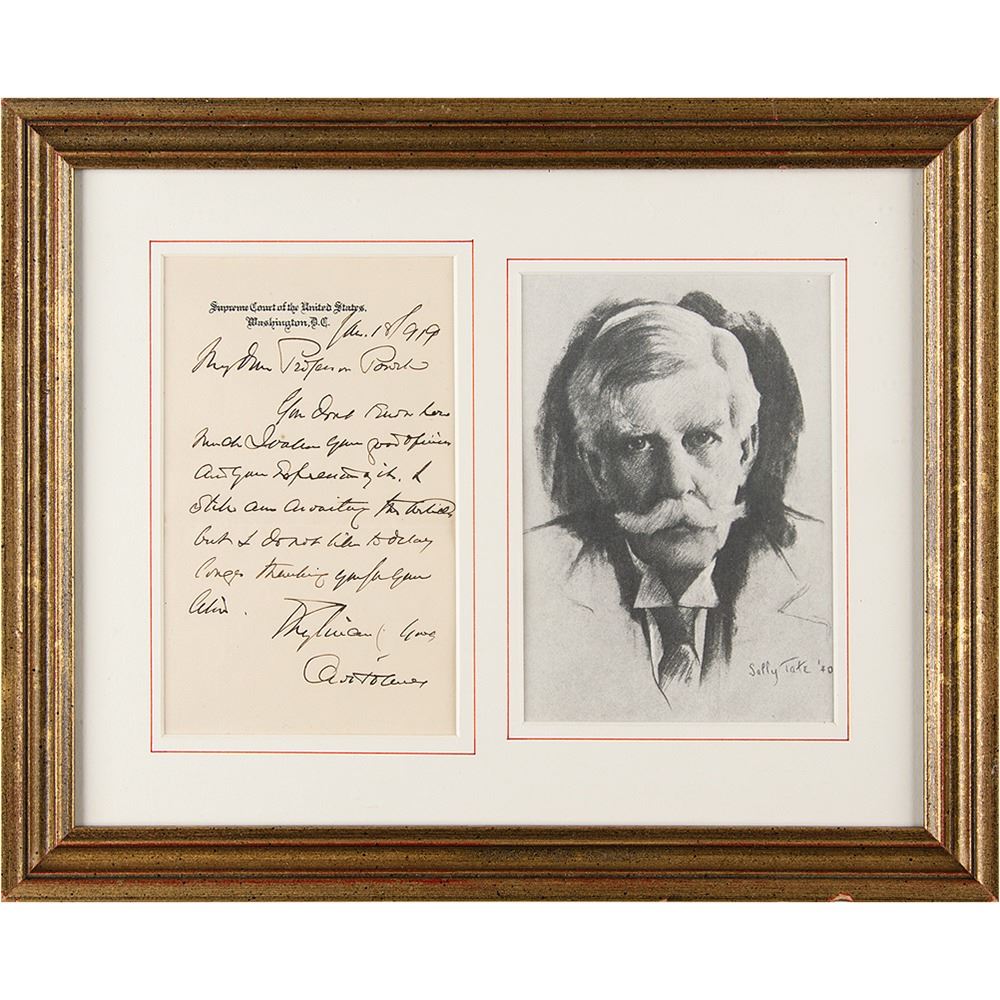 Supreme Court of the United States,
Washington, D.C.
Jan. 18 1919
My dear Professor Powell
You dont know how
much I value your good opinion
and your expression of it. I
still am awaiting the articles
but I do not like to delay
longer thanking you for your
Very sincerely yours
O W Holmes
Sally Tate '40